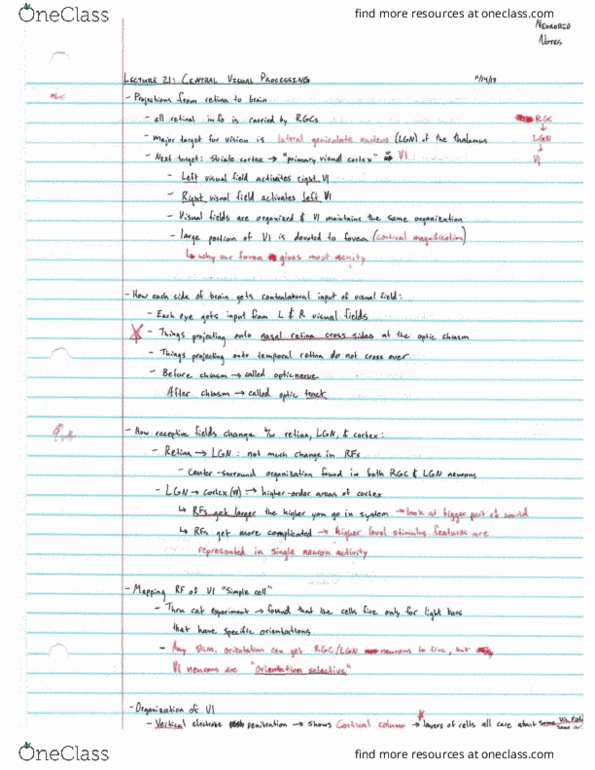 OneClass
find more resources at oneclass.com
NEUROBIO
NOTES
LECTURE 21: CENTRAL VISUAL PROCESSING
- Projections from retina to brain
- all retinal info is carried by RGCs
RGC
- major target for vision is lateral geniculate nucleus (LGN) of the thalamus
LGN
- Next target: striate cortex → "primary visual cortex" V1
V1
- Left visual field activates right V1
- Right visual field activates left V1
- Visual fields are organized & V1 maintains the same organization
- large portion of V1 is devoted to fovea (cortical magnification)
↳ why our fovea gives most acuity
- How each side of brain gets contralateral input of visual field:
- Each eye gets input from L & R visual fields
- Things projecting onto nasal retina cross sides at the optic chiasm
- Things projecting onto temporal retina do not cross over
- Before chiasm → called optic nerve
After chiasm → called optic tract
- How receptive fields change b/w retina, LGN, & cortex:
- Retina → LGN: not much change in RFs
- Center-surround organization found in both RGC & LGN neurons
- LGN → cortex (V1) → higher-order areas of cortex
↳ RFs get larger the higher you go in system → look at bigger part of world
↳ RFs get more complicated → higher level stimulus features are
represented in single neuron activity
- Mapping RF of V1 "simple cell"
- Thru cat experiment → found that the cells fire only for light bars
that have specific orientations
- Any stim. orientation can get RGC/LGN neurons to fire, but
V1 neurons are "orientation selective"
- Organization of V1
- Vertical electrode penetration → shows cortical column → layers of cells all care about same
OneClass
find more resources at oneclass.com